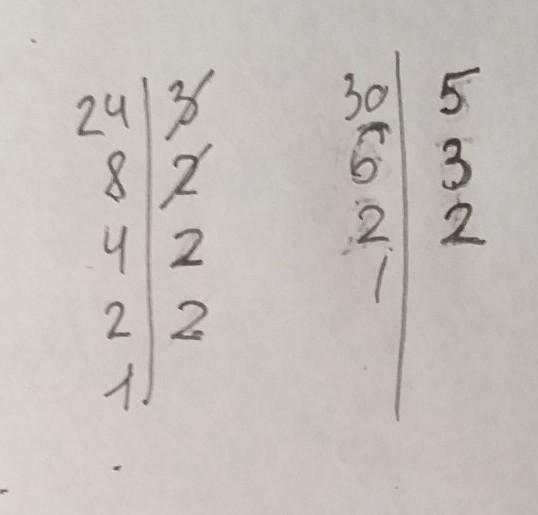 24 | 3
8 | 2
4 | 2
2 | 2
1 |
30 | 5
6 | 3
2 | 2
1 |